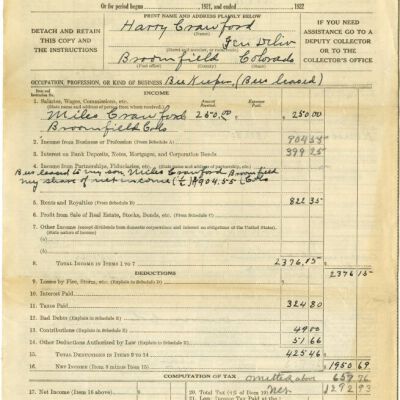 Or for period begun , 1921, and ended , 1922
PRINT NAME AND ADDRESS PLAINLY BELOW
DETACH AND RETAIN
THIS COPY AND
THE INSTRUCTIONS
Harry Crawford
Gen Deliv
(Street and number, or rural route)
Broomfield Colorado
(County) (State)
IF YOU NEED
ASSISTANCE GO TO A
DEPUTY COLLECTOR
OR TO THE
COLLECTOR'S OFFICE
OCCUPATION, PROFESSION, OR KIND OF BUSINESS Bee Keeper, (Bees leased)
INCOME
1. Salaries, Wages, Commissions, etc.
(State name and address of person from whom received) Amount Received. Expenses Paid.
Miles Crawford 250.00 $ 250.00
Broomfield Colo
2. Income from Business or Profession (From Schedule A) 904 55
3. Interest on Bank Deposits, Notes, Mortgages, and Corporation Bonds 399 25
4. Income from Partnerships, Fiduciaries, etc.
Bees leased to my son Miles Crawford Broomfield
my share of net income (½) $904.55 Colo
5. Rents and Royalties (From Schedule B) 822 35
6. Profit from Sale of Real Estate, Stocks, Bonds, etc. (From Schedule C)
7. Other Income (except dividends from domestic corporations and interest on obligations of the United States).
(State nature of income)
8. TOTAL INCOME IN ITEMS 1 TO 7 $ 2376.15 2376 15
DEDUCTIONS
9. Losses by Fire, Storm, etc. (Explain in Schedule D)
10. Interest Paid
11. Taxes Paid 324 80
12. Bad Debts (Explain in Schedule E)
13. Contributions (Explain in Schedule E) 49 00
14. Other Deductions Authorized by Law (Explain in Schedule E) 51 66
15. TOTAL DEDUCTIONS IN ITEMS 9 TO 14 425 46
16. NET INCOME (Item 8 minus Item 15) $ 1950 69
COMPUTATION OF TAX omitted above 657 76
17. Net Income (Item 16) 20. Normal Tax (4% of Item 19) Net 1292 93